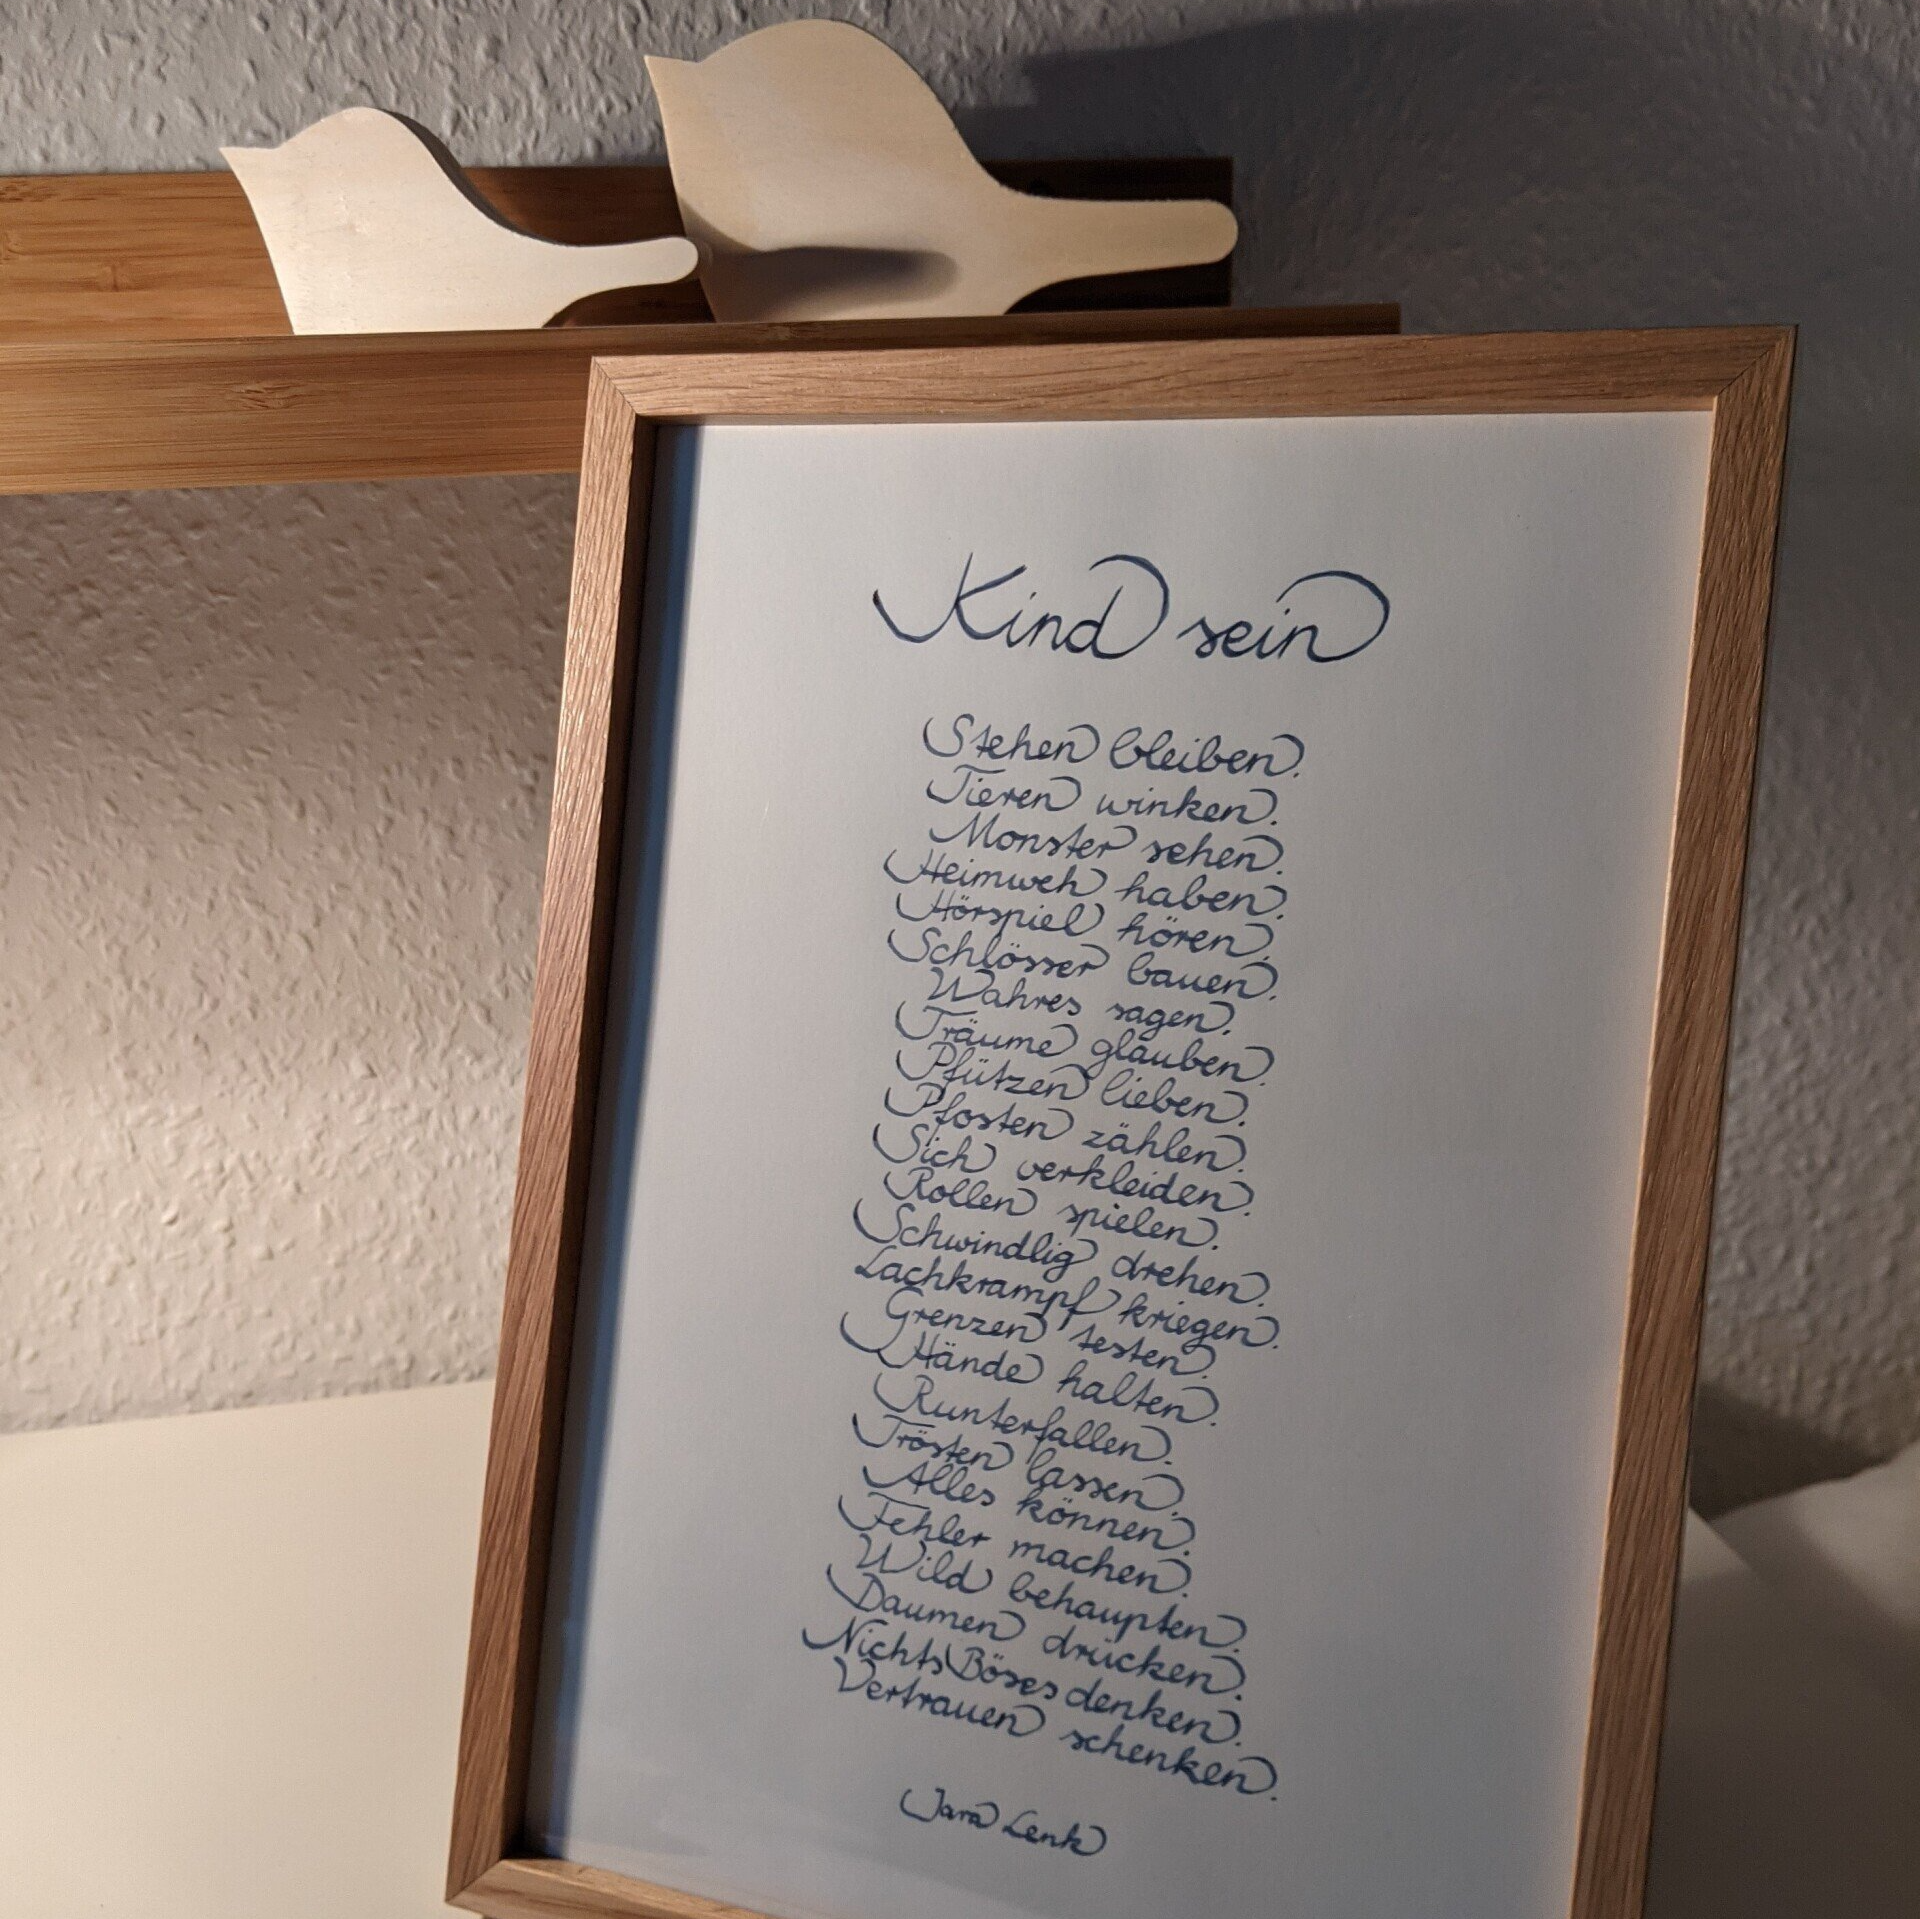 Kind sein
Stehen bleiben.
Tieren winken.
Monster sehen.
Heimweh haben.
Hörspiel hören.
Schlösser bauen.
Wahres sagen.
Träume glauben.
Pfützen lieben.
Pfosten zählen.
Sich verkleiden.
Rollen spielen.
Schwindlig drehen.
Lachkrampf kriegen.
Grenzen testen.
Hände halten.
Runterfallen.
Trösten lassen.
Alles können.
Fehler machen.
Wild behaupten.
Daumen drücken.
Nichts Böses denken.
Vertrauen schenken.
Jara Lenk